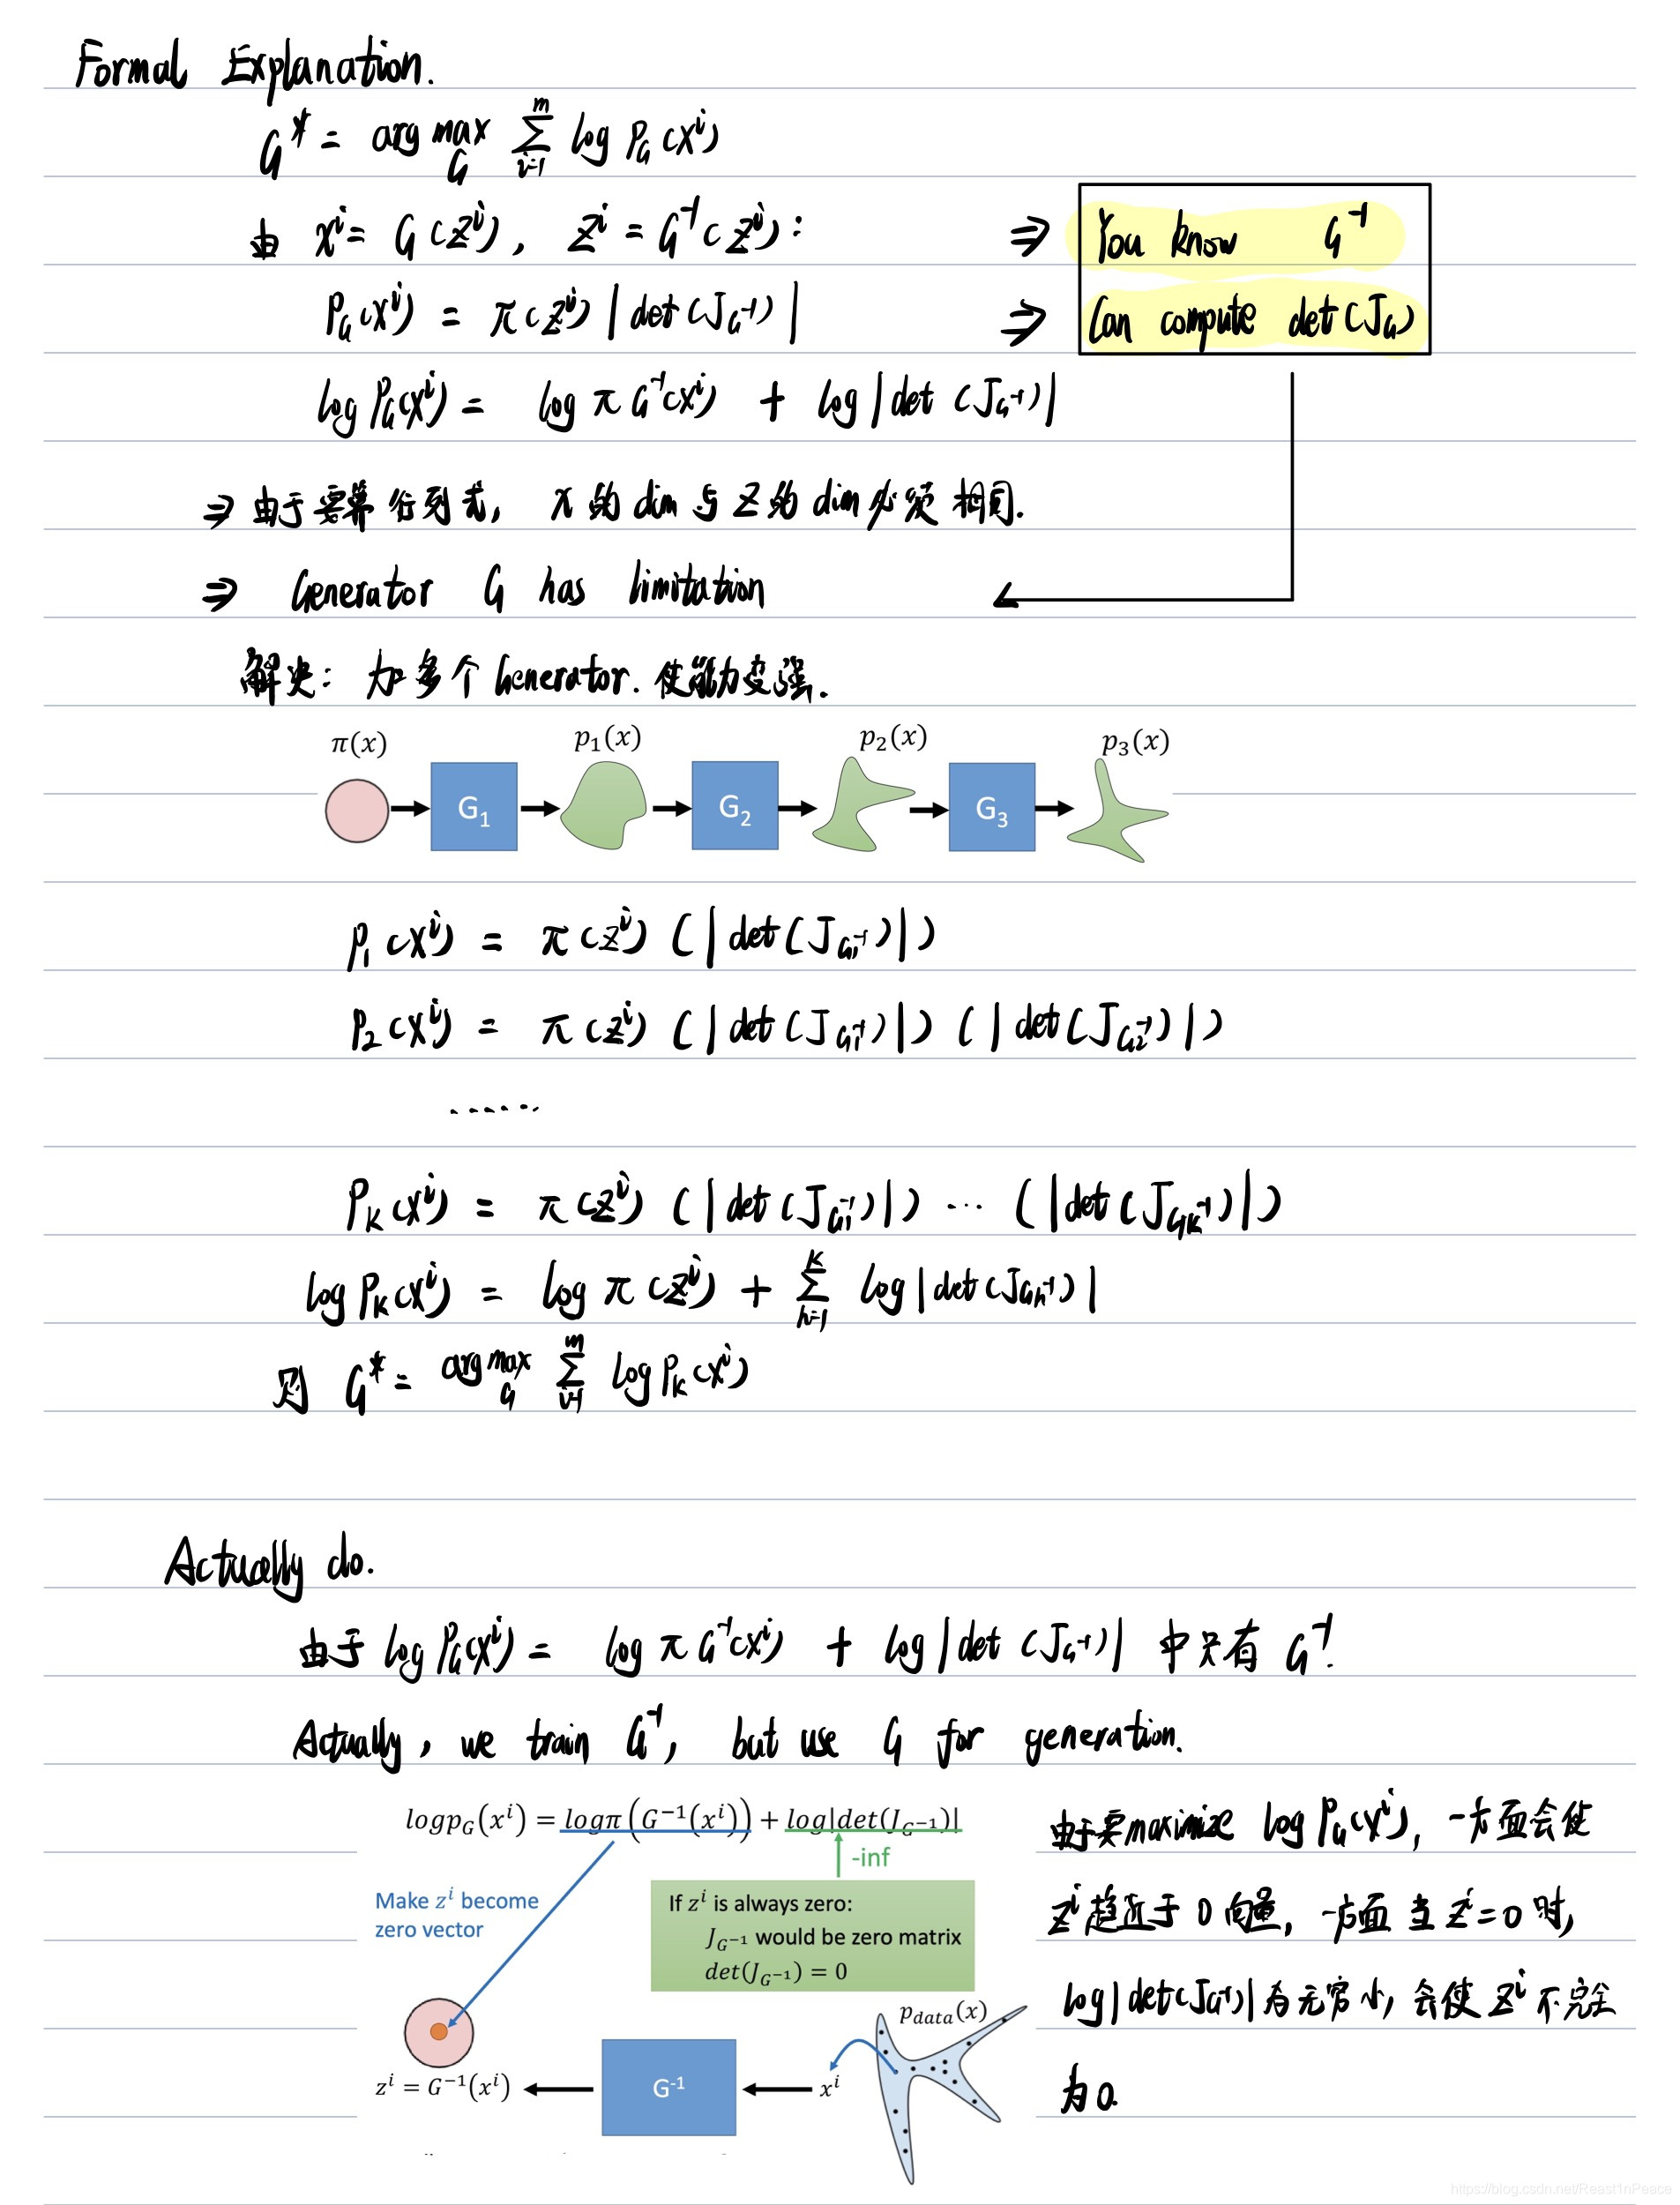 Formal Explanation.
G* = arg max_G Σ_{i=1}^{m} log P_G(x^i)
由 x^i = G(z^i), z^i = G^{-1}(z^i): ⇒ You know G^{-1}
P_G(x^i) = π(z^i) |det(J_{G^{-1}})| ⇒ Can compute det(J_G)
log P_G(x^i) = log π G^{-1}(x^i) + log|det(J_{G^{-1}})|
⇒ 由于要算行列式, x 的 dim 与 z 的 dim 必须相同.
⇒ Generator G has limitation
解决: 加多个 Generator. 使能力变强.
π(x) p_1(x) p_2(x) p_3(x)
G_1 G_2 G_3
P_1(x^i) = π(z^i) (|det(J_{G_1^{-1}})|)
P_2(x^i) = π(z^i) (|det(J_{G_1^{-1}})|) (|det(J_{G_2^{-1}})|)
......
P_K(x^i) = π(z^i) (|det(J_{G_1^{-1}})|) ... (|det(J_{G_K^{-1}})|)
log P_K(x^i) = log π(z^i) + Σ_{h=1}^{K} log|det(J_{G_h^{-1}})|
则 G* = arg max_G Σ_{i=1}^{m} log P_K(x^i)
Actually do.
由于 log P_G(x^i) = log π G^{-1}(x^i) + log|det(J_{G^{-1}})| 中只有 G^{-1}!
Actually, we train G^{-1}, but use G for generation.
logp_G(x^i) = logπ(G^{-1}(x^i)) + log|det(J_{G^{-1}})|
-inf
Make z^i become
zero vector
If z^i is always zero:
J_{G^{-1}} would be zero matrix
det(J_{G^{-1}}) = 0
p_data(x)
z^i = G^{-1}(x^i) G^{-1} x^i
由于要maximize log P_G(x^i), 一方面会使
z^i 趋近于 0 向量, 一方面 当 z^i=0 时,
log|det(J_{G^{-1}})| 为无穷小, 会使 z^i 不完全
为0.
https://blog.csdn.net/Reast1nPeace